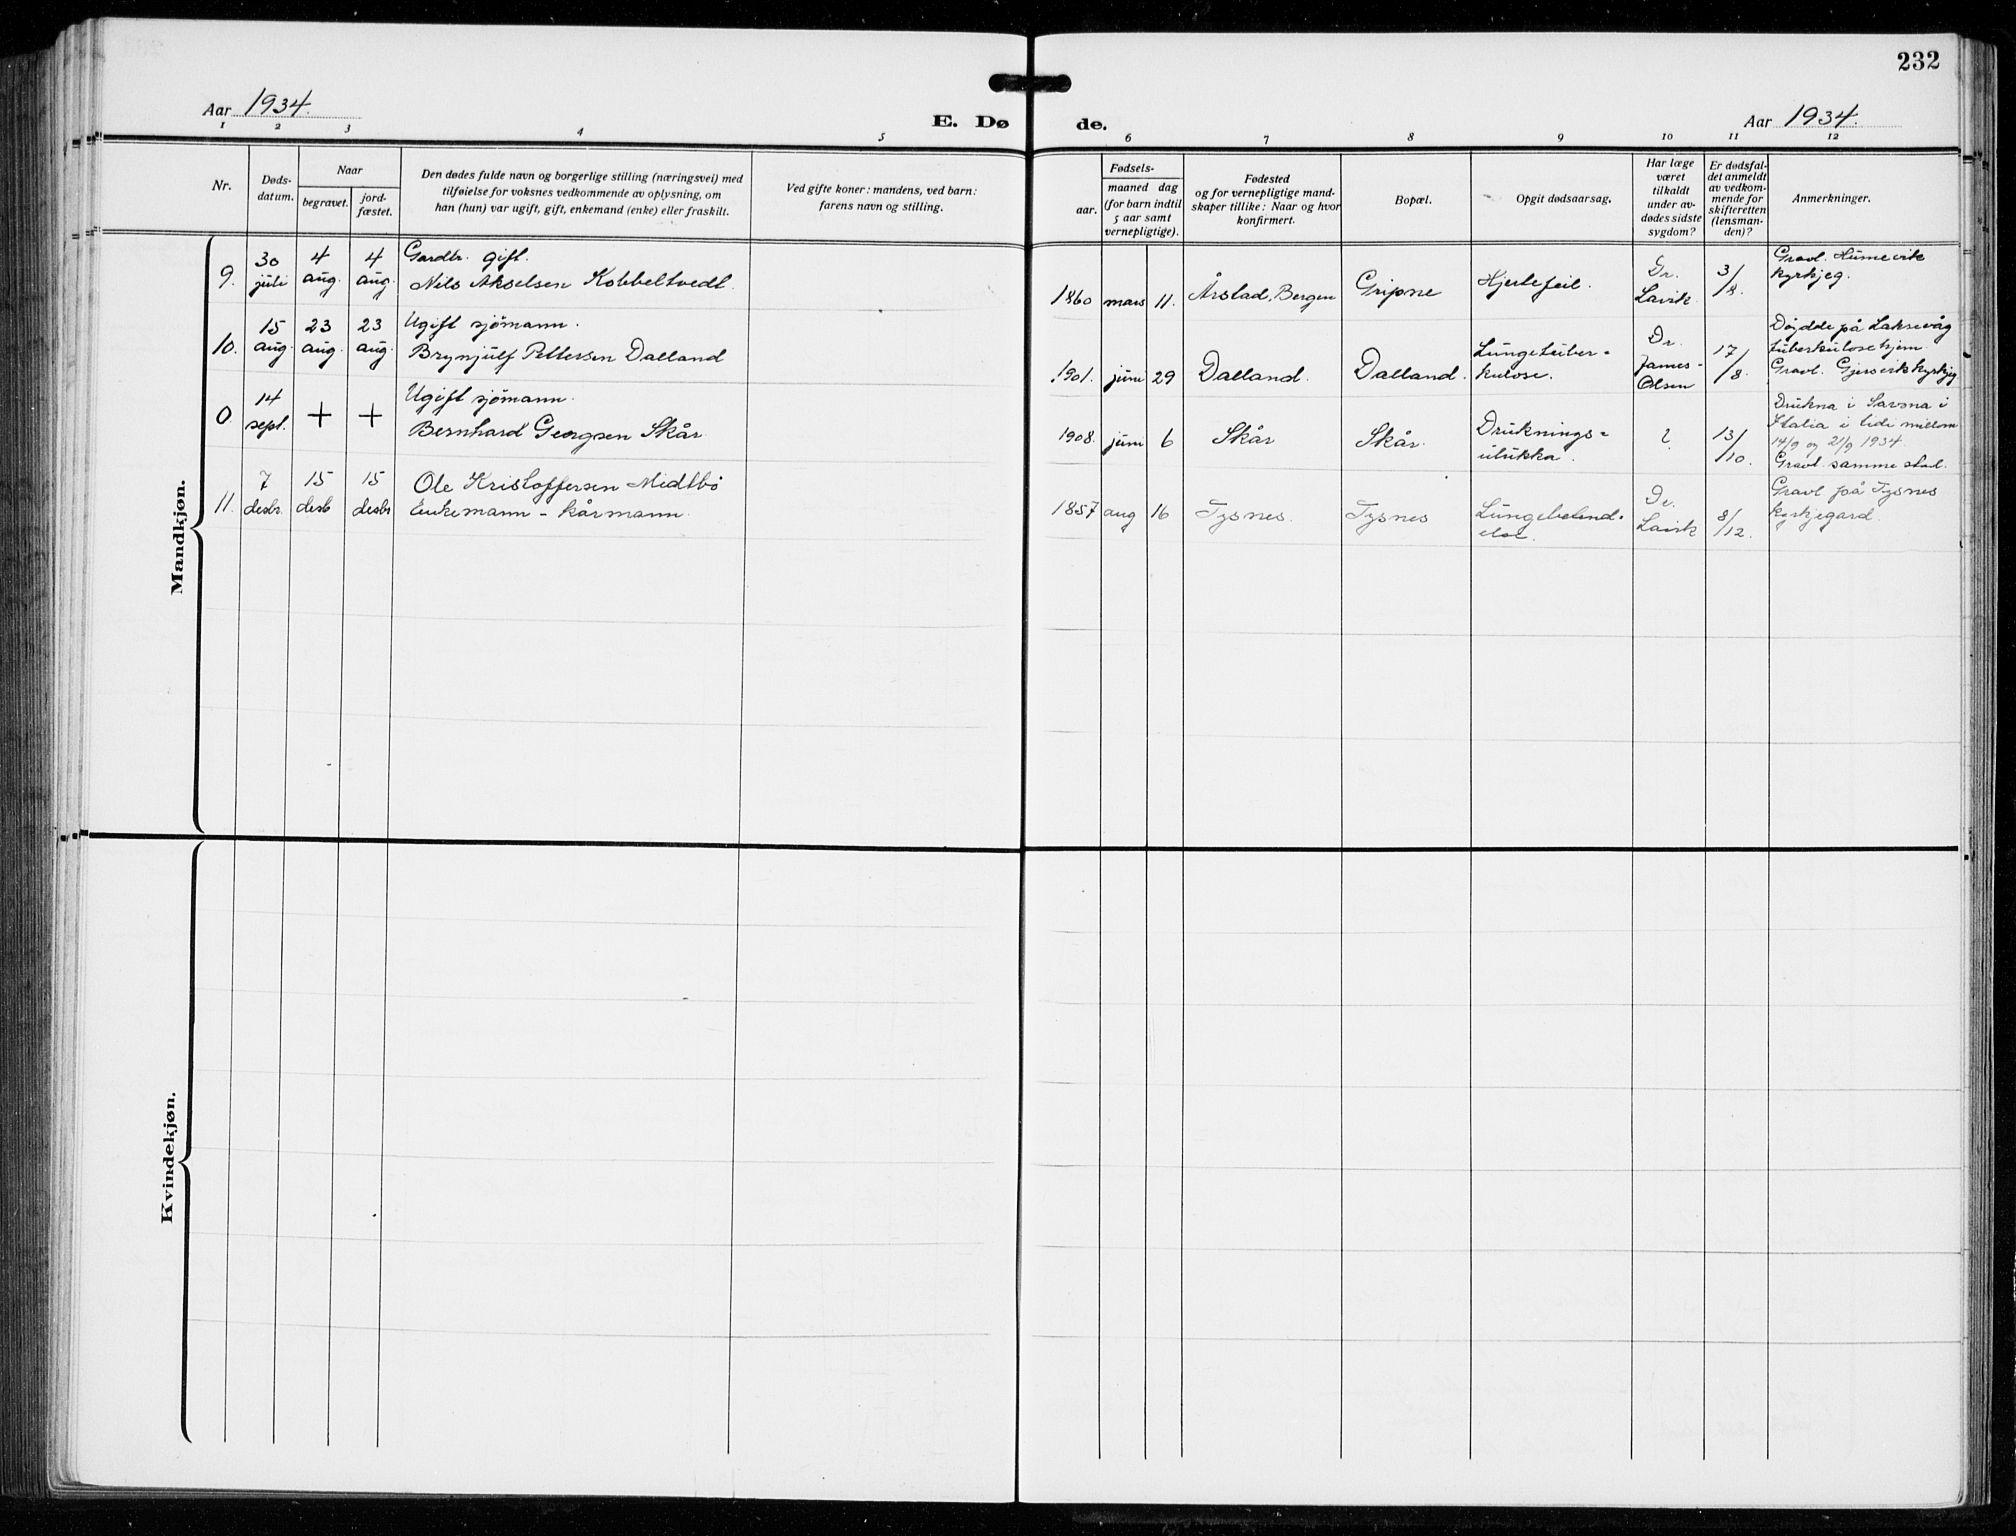 232
Aar 1934.
E. Døde.
Aar 1934.
1 2 3 4 5 6 7 8 9 10 11 12
Nr.
Døds-
datum.
Naar
begravet.
jord-
fæstet.
Den dødes fulde navn og borgerlige stilling (næringsvei) med
tilføielse for voksnes vedkommende av oplysning, om
han (hun) var ugift, gift, enkemand (enke) eller fraskilt.
Ved gifte koner: mandens, ved barn:
farens navn og stilling.
Fødsels-
aar.
maaned dag
(for barn indtil
5 aar samt
vernepligtige).
Fødested
og for vernepligtige mand-
skaper tillike: Naar og hvor
konfirmert.
Bopæl.
Opgit dødsaarsag.
Har læge
været
tilkaldt
under av-
dødes sidste
sygdom?
Er dødsfal-
det anmeldt
av vedkom-
mende for
skifteretten
(lensman-
den)?
Anmerkninger.
Mandkjøn.
9.
30
juli
4
aug.
4
aug.
Gardbr. gift.
Nils Akselsen Kobbeltvedt.
1860 mars 11.
Årstad, Bergen
Gripne
Hjertefeil.
Dr.
Lavik
3/8.
Gravl. Husnevik
kyrkjeg.
10.
15
aug.
23
aug.
23
aug.
Ugift sjömann.
Brynjulf Pettersen Dalland
1901. juni 29
Dalland.
Dalland.
Lungetuber-
kulose.
Dr.
James-
Olsen
17/8.
Döydde på Laksevåg
tuberkulosehjem.
Gravl. Gjersvik kyrkjeg
0
14
sept.
+
+
Ugift sjömann.
Bernhard Georgsen Skår
1908. juni 6
Skår
Skår.
Druknings-
ulukka.
?
13/10.
Drukna i Savona i
Italia i tidi millom
14/9 og 21/9 1934.
Gravl. samme stad.
11.
7
desbr.
15
desb
15
desbr
Ole Kristoffersen Midtbö
Enkemann - kårmann.
1857 aug 16
Tysnes.
Tysnes
Lungebetend-
else.
Dr.
Lavik
8/12.
Gravl på Tysnes
kyrkjegard.
Kvindekjøn.